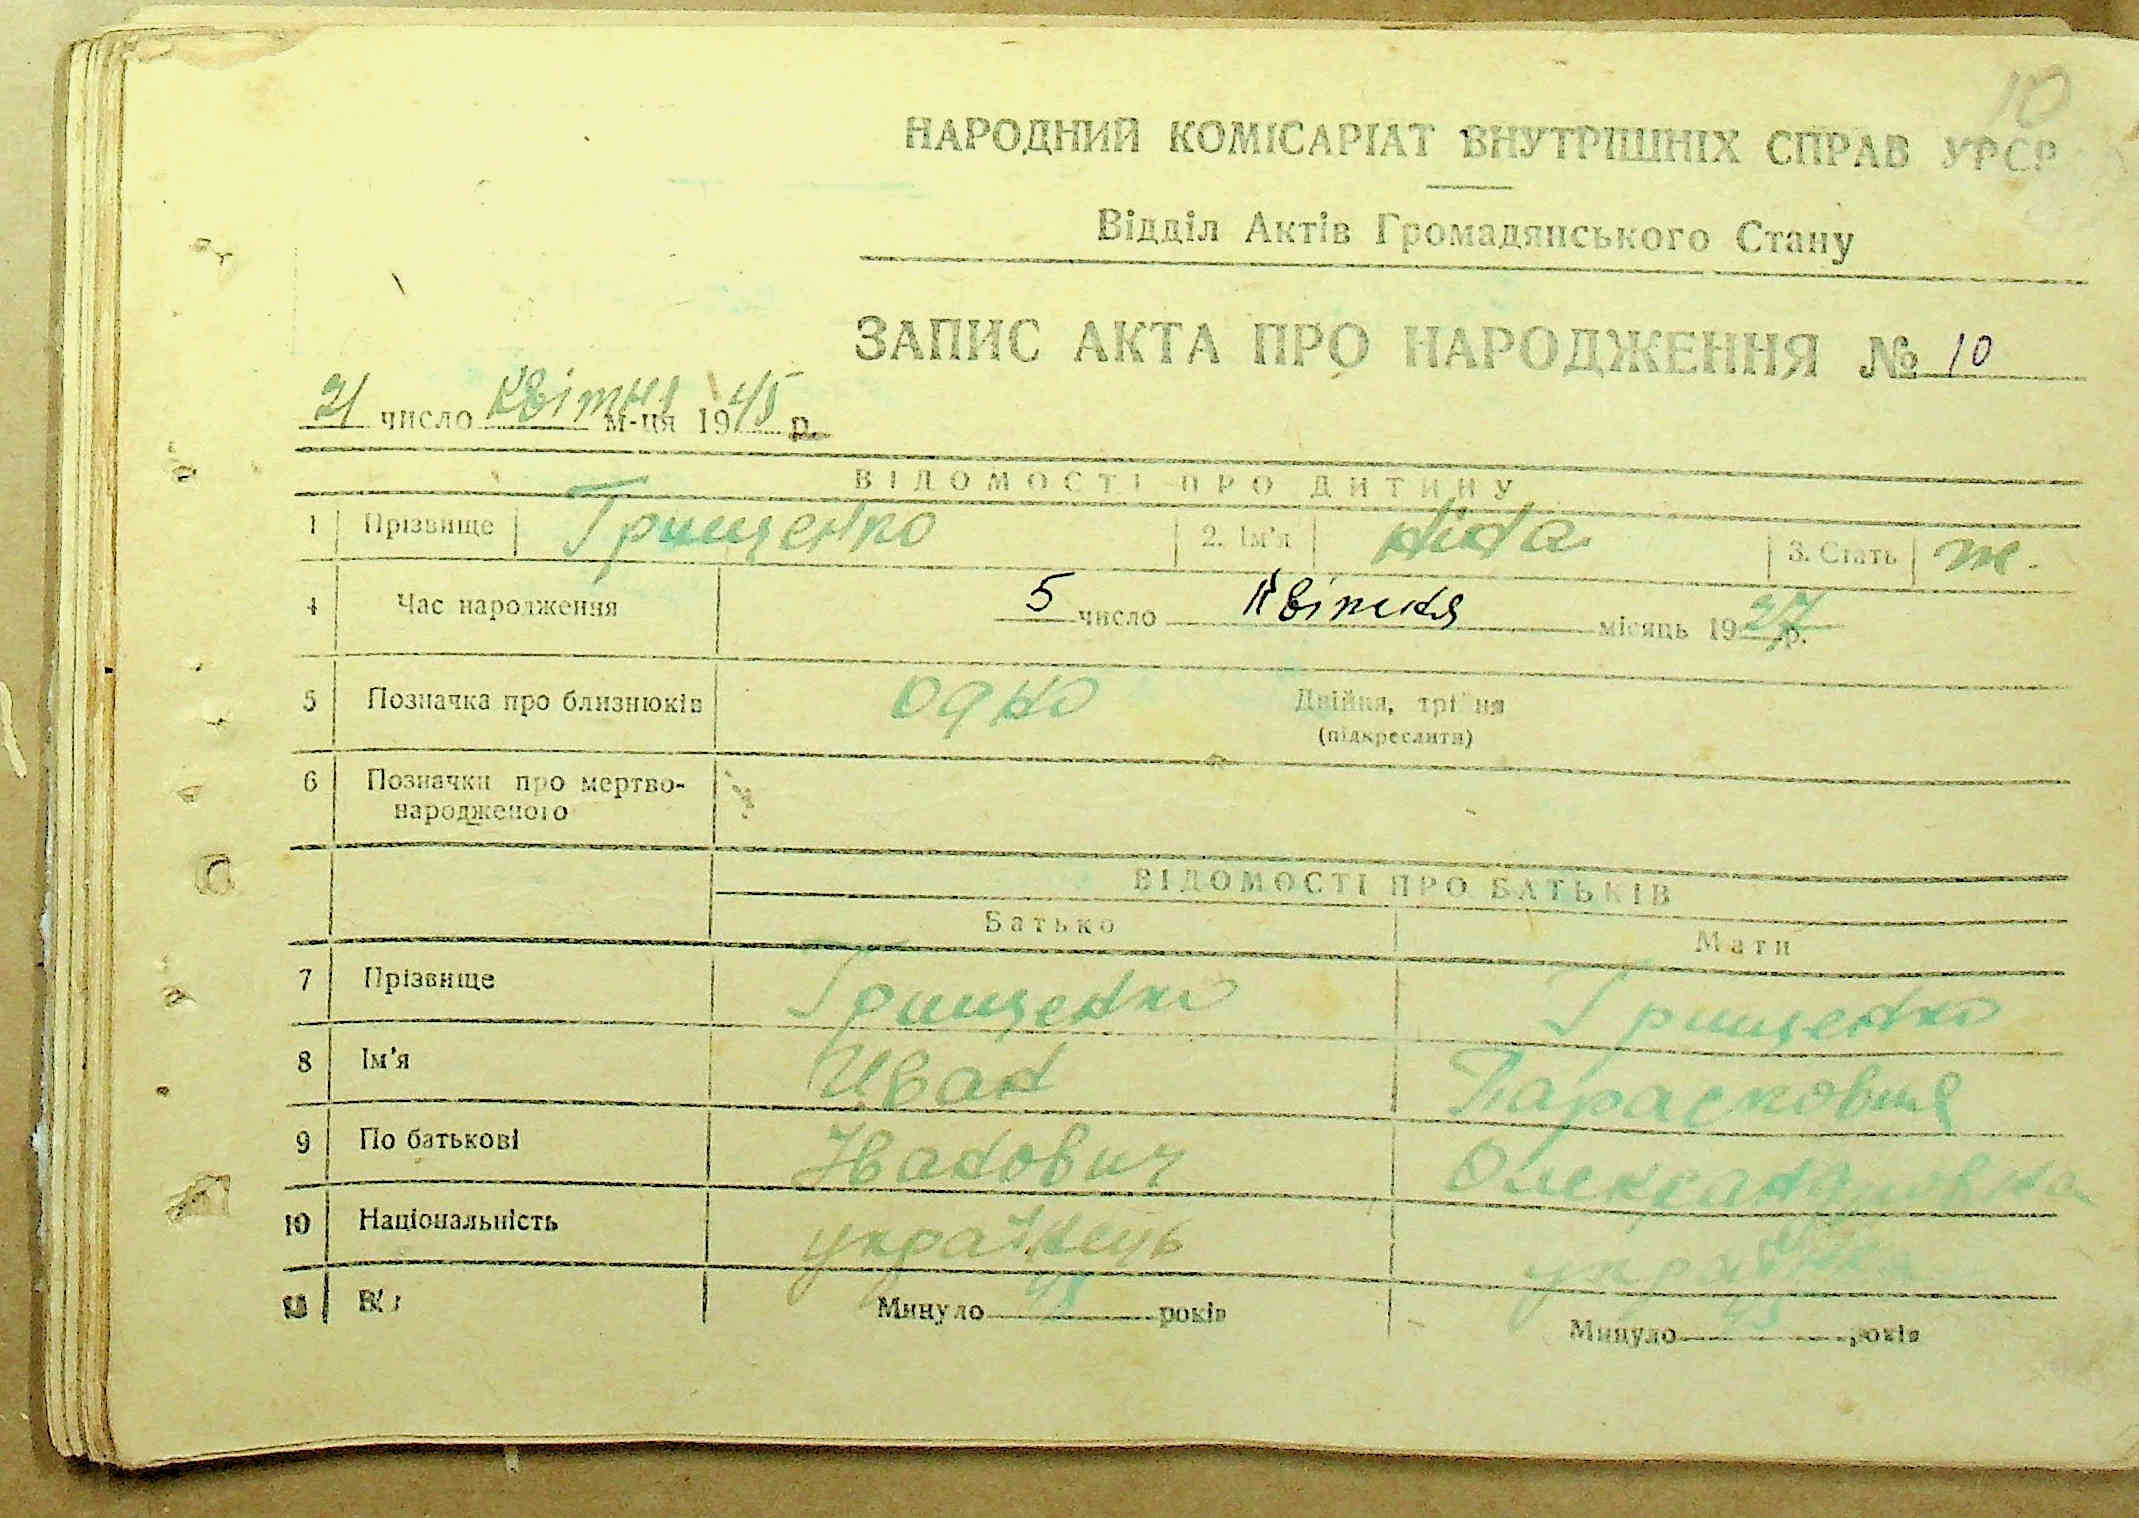 10
НАРОДНИЙ КОМІСАРІАТ ВНУТРІШНІХ СПРАВ УРСР
Відділ Актів Громадянського Стану
ЗАПИС АКТА ПРО НАРОДЖЕННЯ № 10
21 число Квітня м-ця 1945 р.
ВІДОМОСТІ ПРО ДИТИНУ
1 Прізвище Грищенко 2. Ім'я Ніна 3. Стать ж.
4 Час народження 5 число Квітня місяць 1927 р.
5 Позначка про близнюків одно Двійня, трійня
(підкреслити)
6 Позначки про мертво-
народженого
ВІДОМОСТІ ПРО БАТЬКІВ
Батько Мати
7 Прізвище Грищенко Грищенко
8 Ім'я Иван Парасковия
9 По батькові Иванович Олександровна
10 Національність українець
11 Минуло років Минуло років